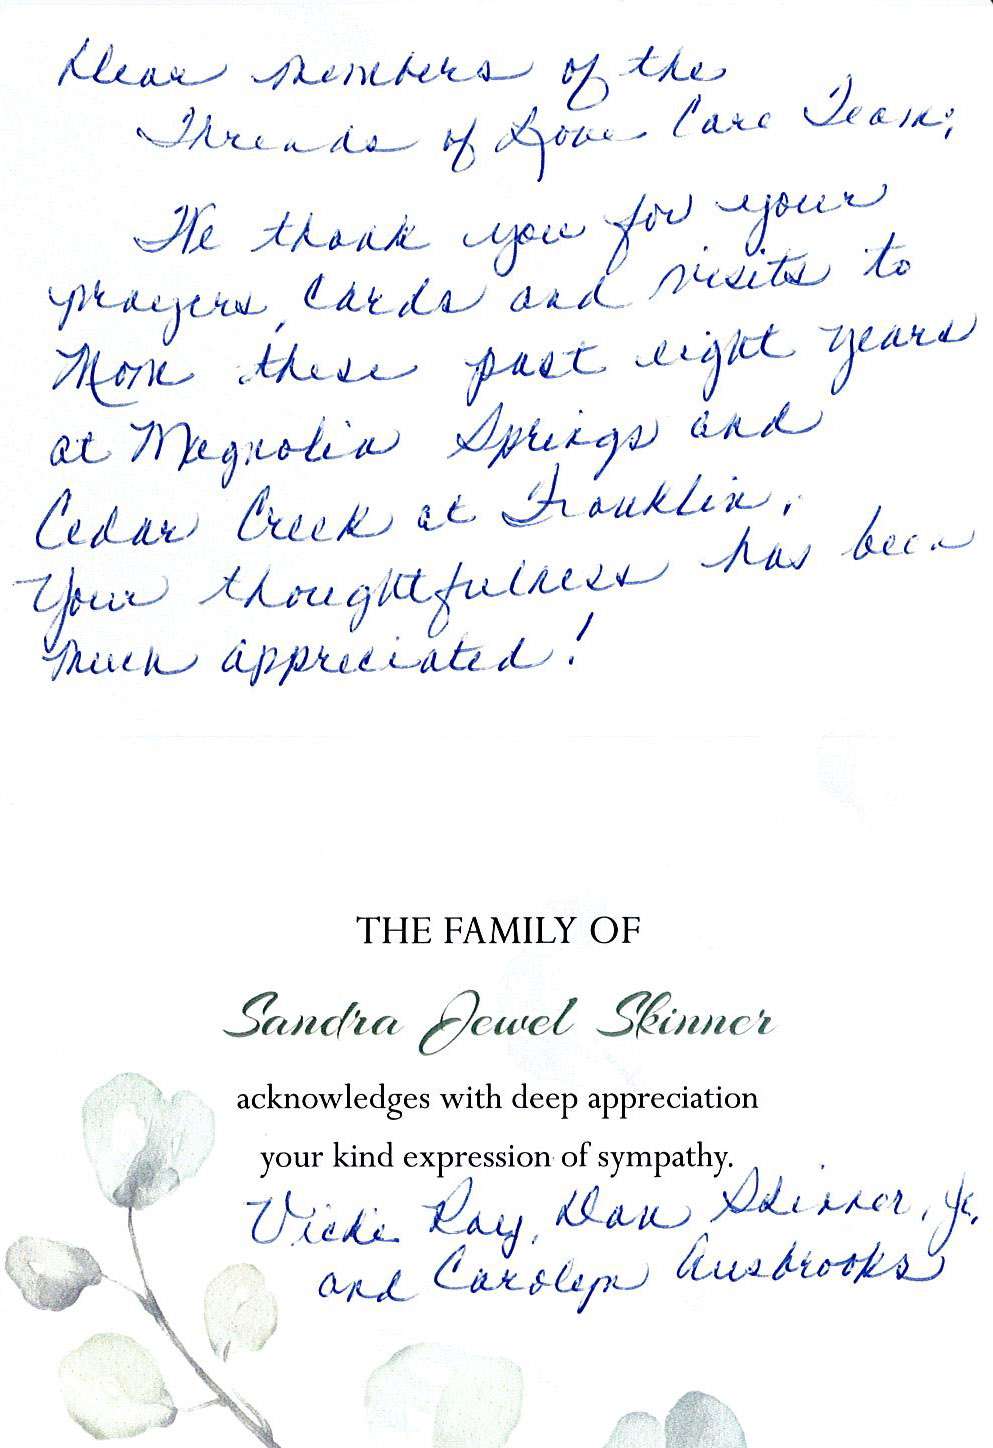 Dear members of the
Threads of Love Care Team;
We thank you for your
prayers, cards and visits to
Mom these past eight years
at Magnolia Springs and
Cedar Creek at Franklin.
Your thoughtfulness has been
much appreciated!
THE FAMILY OF
Sandra Jewel Skinner
acknowledges with deep appreciation
your kind expression of sympathy.
Vickie Ray, Dan Skinner, Jr.
and Carolyn Ausbrooks